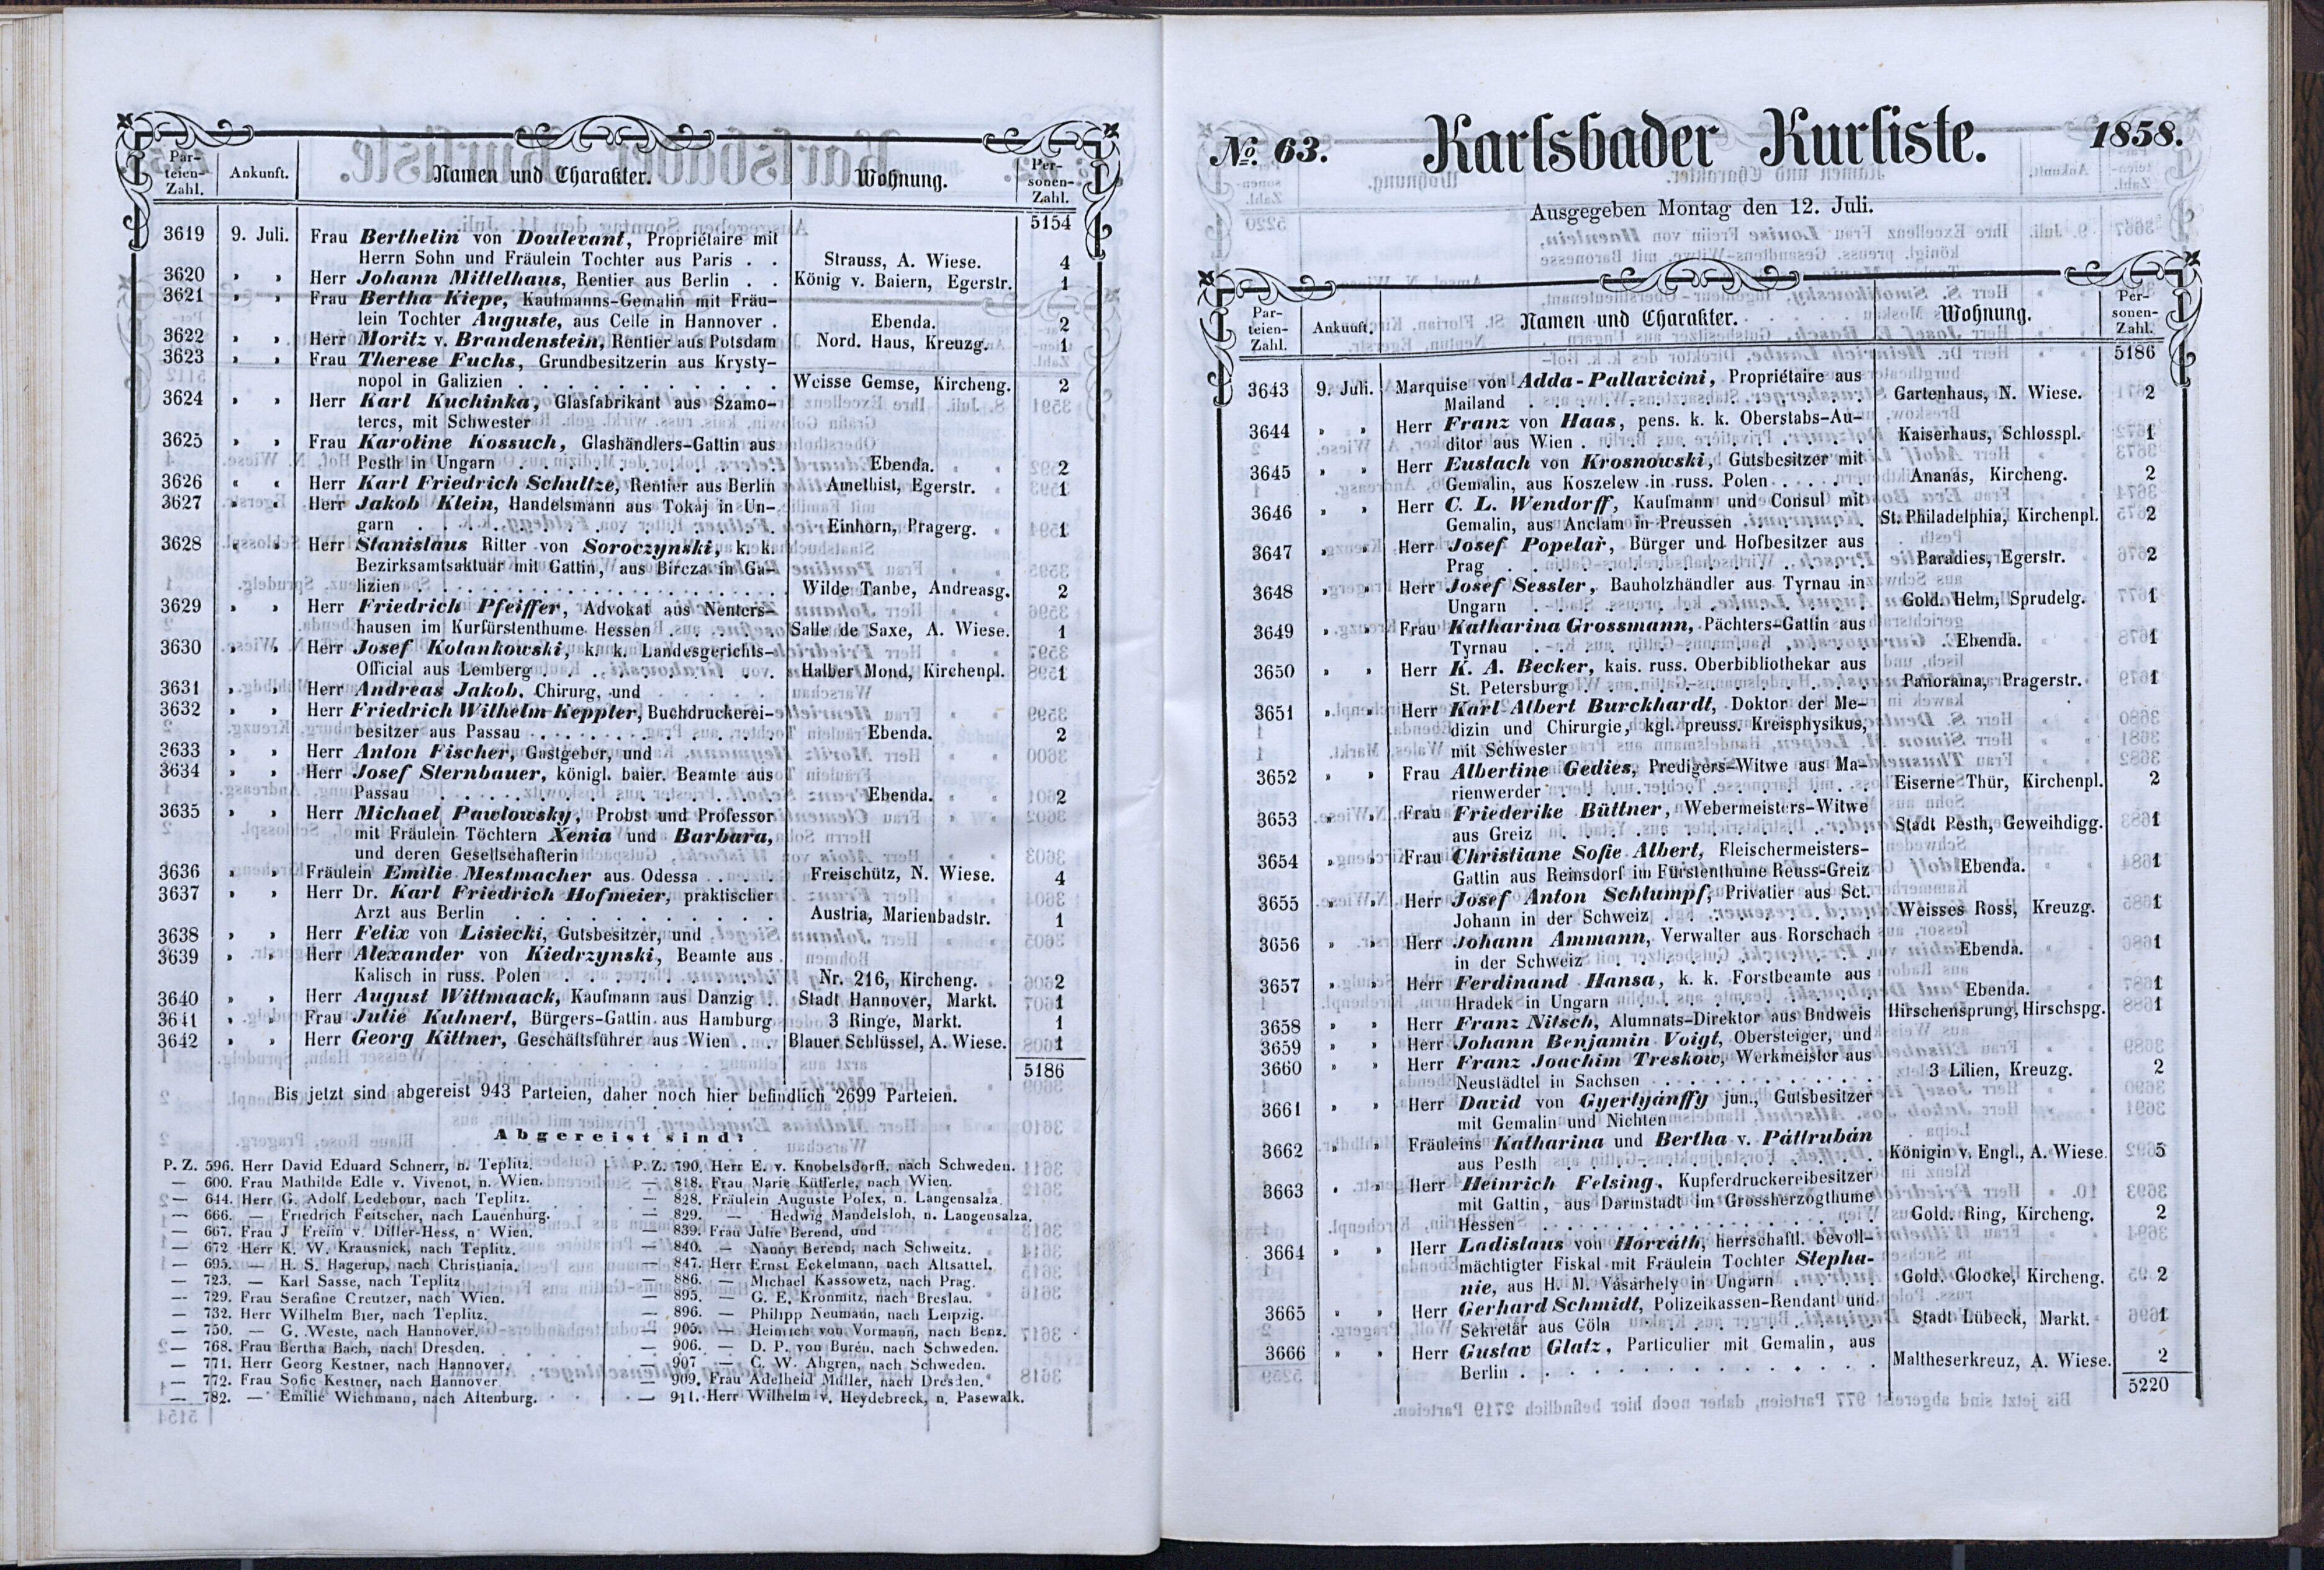 Par-
teien-
Zahl.
Ankunft.
Namen und Charakter.
Wohnung.
Per-
sonen-
Zahl.
5154
3619 9. Juli. Frau Berthelin von Doulevant, Propriétaire mit
Herrn Sohn und Fräulein Tochter aus Paris . . Strauss, A. Wiese. 4
3620 » » Herr Johann Mittelhaus, Rentier aus Berlin . . König v. Baiern, Egerstr. 1
3621 » » Frau Bertha Kiepe, Kaufmanns-Gemalin mit Fräu-
lein Tochter Auguste, aus Celle in Hannover . Ebenda. 2
3622 » » Herr Moritz v. Brandenstein, Rentier aus Potsdam Nord. Haus, Kreuzg. 1
3623 » » Frau Therese Fuchs, Grundbesitzerin aus Krysty-
nopol in Galizien . . . . . . . . . . . Weisse Gemse, Kircheng. 2
3624 » » Herr Karl Kuchinka, Glasfabrikant aus Szamo-
tercs, mit Schwester
3625 » » Frau Karoline Kossuch, Glashändlers-Gattin aus
Pesth in Ungarn . . . . . . . . . . . Ebenda. 2
3626 « « Herr Karl Friedrich Schultze, Rentier aus Berlin Amethist, Egerstr. 1
3627 » » Herr Jakob Klein, Handelsmann aus Tokaj in Un-
garn . . . . . . . . . . . . . . . Einhorn, Pragerg. 1
3628 « » Herr Stanislaus Ritter von Soroczynski, k. k.
Bezirksamtsaktuar mit Gattin, aus Bircza in Ga-
lizien . . . . . . . . . . . . . . . Wilde Tanbe, Andreasg. 2
3629 » » Herr Friedrich Pfeiffer, Advokat aus Nenters-
hausen im Kurfürstenthume Hessen . . . . . Salle de Saxe, A. Wiese. 1
3630 » » Herr Josef Kolankowski, k. k. Landesgerichts-
Official aus Lemberg . . . . . . . . . . Halber Mond, Kirchenpl. 1
3631 » » Herr Andreas Jakob, Chirurg, und
3632 » » Herr Friedrich Wilhelm Keppler, Buchdruckerei-
besitzer aus Passau . . . . . . . . . . Ebenda. 2
3633 » » Herr Anton Fischer, Gastgeber, und
3634 » » Herr Josef Sternbauer, königl. baier. Beamte aus
Passau . . . . . . . . . . . . . . Ebenda. 2
3635 » » Herr Michael Pawlowsky, Probst und Professor
mit Fräulein Töchtern Xenia und Barbara,
und deren Gesellschafterin
3636 » » Fräulein Emilie Mestmacher aus Odessa . . . Freischütz, N. Wiese. 4
3637 » » Herr Dr. Karl Friedrich Hofmeier, praktischer
Arzt aus Berlin . . . . . . . . . . . Austria, Marienbadstr. 1
3638 » » Herr Felix von Lisiecki, Gutsbesitzer, und
3639 » » Herr Alexander von Kiedrzynski, Beamte aus
Kalisch in russ. Polen . . . . . . . . . Nr. 216, Kircheng. 2
3640 » » Herr August Wittmaack, Kaufmann aus Danzig . Stadt Hannover, Markt. 1
3641 » » Frau Julie Kuhnert, Bürgers-Gattin aus Hamburg 3 Ringe, Markt. 1
3642 » » Herr Georg Kittner, Geschäftsführer aus Wien . . Blauer Schlüssel, A. Wiese. 1
5186
Bis jetzt sind abgereist 943 Parteien, daher noch hier befindlich 2699 Parteien.
Abgereist sind:
P. Z. 596. Herr David Eduard Schnerr, n. Teplitz.
— 600. Frau Mathilde Edle v. Vivenot, n. Wien.
— 644. Herr G. Adolf Ledebour, nach Teplitz.
— 666. — Friedrich Feitscher, nach Lauenburg.
— 667. Frau J Freiin v. Diller-Hess, n Wien.
— 672 Herr K. W. Krausnick, nach Teplitz.
— 695. — H. S. Hagerup, nach Christiania.
— 723. — Karl Sasse, nach Teplitz
— 729. Frau Serafine Creutzer, nach Wien.
— 732. Herr Wilhelm Bier, nach Teplitz.
— 750. — G. Weste, nach Hannover.
— 768. Frau Bertha Bach, nach Dresden.
— 771. Herr Georg Kestner, nach Hannover.
— 772. Frau Sofie Kestner, nach Hannover
— 782. — Emilie Wichmann, nach Altenburg.
P. Z. 790. Herr E. v. Knobelsdorff, nach Schweden.
— 818. Frau Marie Kütferle, nach Wien.
— 828. Fräulein Auguste Polex, n. Langensalza.
— 829. — Hedwig Mandelsloh, n. Langensalza.
— 839. Frau Julie Berend, und
— 840. — Nanny Berend, nach Schweitz.
— 847. Herr Ernst Eckelmann, nach Altsattel.
— 886. — Michael Kassowetz, nach Prag.
— 895. — G. E. Kronmitz, nach Breslau.
— 896. — Philipp Neumann, nach Leipzig.
— 905. — Heinrich von Vormann, nach Benz.
— 906. — D. P. von Buren, nach Schweden.
— 907 — C. W. Ahgren, nach Schweden.
— 909. Frau Adelheid Müller, nach Dresden.
— 911. Herr Wilhelm v. Heydebreck, n. Pasewalk.
No. 63. Karlsbader Kurliste. 1858.
Ausgegeben Montag den 12. Juli.
Par-
teien-
Zahl.
Ankunft.
Namen und Charakter.
Wohnung.
Per-
sonen-
Zahl.
5186
3643 9. Juli. Marquise von Adda-Pallavicini, Propriétaire aus
Mailand . . . . . . . . . . . . . . Gartenhaus, N. Wiese. 2
3644 » » Herr Franz von Haas, pens. k. k. Oberstabs-Au-
ditor aus Wien . . . . . . . . . . . . Kaiserhaus, Schlosspl. 1
3645 » » Herr Eustach von Krosnowski, Gutsbesitzer mit
Gemalin, aus Koszelew in russ. Polen . . . . . Ananas, Kircheng. 2
3646 » » Herr C. L. Wendorff, Kaufmann und Consul mit
Gemalin, aus Anclam in Preussen . . . . . . St. Philadelphia, Kirchenpl. 2
3647 » » Herr Josef Popelař, Bürger und Hofbesitzer aus
Prag . . . . . . . . . . . . . . . Paradies, Egerstr. 2
3648 » » Herr Josef Sessler, Bauholzhändler aus Tyrnau in
Ungarn . . . . . . . . . . . . . . Gold. Helm, Sprudelg. 1
3649 » » Frau Katharina Grossmann, Pächters-Gattin aus
Tyrnau . . . . . . . . . . . . . . Ebenda. 1
3650 » » Herr K. A. Becker, kais. russ. Oberbibliothekar aus
St. Petersburg . . . . . . . . . . . . Panorama, Pragerstr. 1
3651 » » Herr Karl Albert Burckhardt, Doktor der Me-
dizin und Chirurgie, kgl. preuss. Kreisphysikus,
mit Schwester
3652 » » Frau Albertine Gedies, Predigers-Witwe aus Ma-
rienwerder . . . . . . . . . . . . . Eiserne Thür, Kirchenpl. 2
3653 » » Frau Friederike Büttner, Webermeisters-Witwe
aus Greiz . . . . . . . . . . . . . Stadt Pesth, Geweihdigg. 1
3654 » » Frau Christiane Sofie Albert, Fleischermeisters-
Gattin aus Reinsdorf im Fürstenthume Reuss-Greiz Ebenda. 1
3655 » » Herr Josef Anton Schlumpf, Privatier aus Sct.
Johann in der Schweiz . . . . . . . . . Weisses Ross, Kreuzg. 1
3656 » » Herr Johann Ammann, Verwalter aus Rorschach
in der Schweiz . . . . . . . . . . . . Ebenda. 1
3657 » » Herr Ferdinand Hansa, k. k. Forstbeamte aus
Hradek in Ungarn . . . . . . . . . . . Ebenda. 1
3658 » » Herr Franz Nitsch, Alumnats-Direktor aus Budweis Hirschensprung, Hirschspg. 1
3659 » » Herr Johann Benjamin Voigt, Obersteiger, und
3660 » » Herr Franz Joachim Treskow, Werkmeister aus
Neustädtel in Sachsen . . . . . . . . . . 3 Lilien, Kreuzg. 2
3661 » » Herr David von Gyertyánffy jun., Gutsbesitzer
mit Gemalin und Nichten
3662 » » Fräuleins Katharina und Bertha v. Páttrubán
aus Pesth . . . . . . . . . . . . . Königin v. Engl., A. Wiese. 5
3663 » » Herr Heinrich Felsing, Kupferdruckereibesitzer
mit Gattin, aus Darmstadt im Grossherzogthume
Hessen . . . . . . . . . . . . . . Gold. Ring, Kircheng. 2
3664 » » Herr Ladislaus von Horváth, herrschaftl. bevoll-
mächtigter Fiskal mit Fräulein Tochter Stepha-
nie, aus H. M. Vásárhely in Ungarn . . . . . Gold. Glocke, Kircheng. 2
3665 » » Herr Gerhard Schmidt, Polizeikassen-Rendant und
Sekretär aus Cöln . . . . . . . . . . . Stadt Lübeck, Markt. 1
3666 » » Herr Gustav Glatz, Particulier mit Gemalin, aus
Berlin . . . . . . . . . . . . . . Maltheserkreuz, A. Wiese. 2
5220